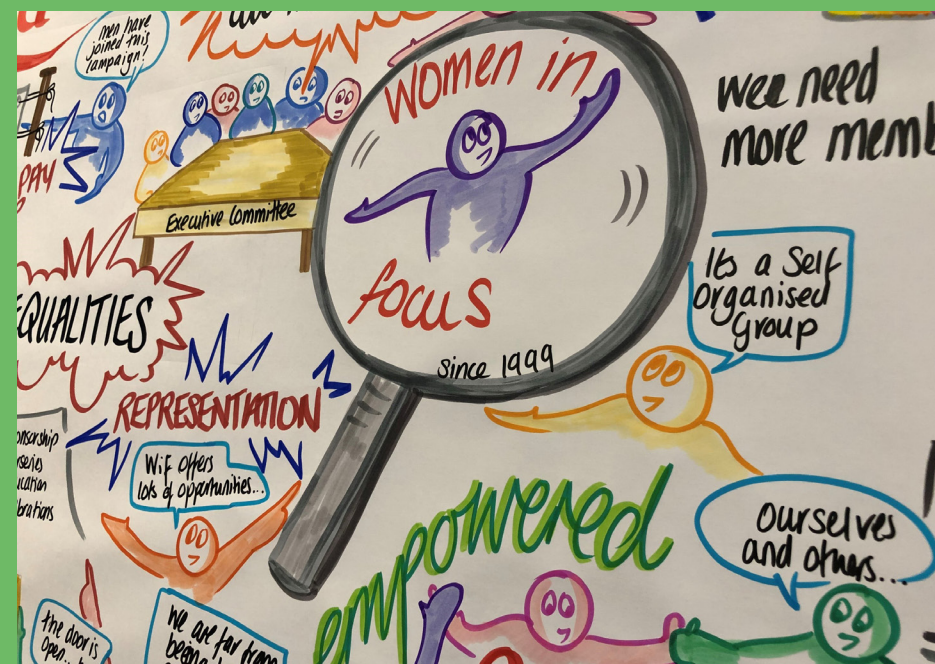 men have
joined this
campaign!
PAY
Executive Committee
women in
focus
since 1999
wee need
more memb
Its a Self
Organised
Group
EQUALITIES
REPRESENTATION
onsorship
rseries
ucation
brations
Wif offers
lots of opportunities...
empowered
Ourselves
and others...
the door is
open...
we are far from